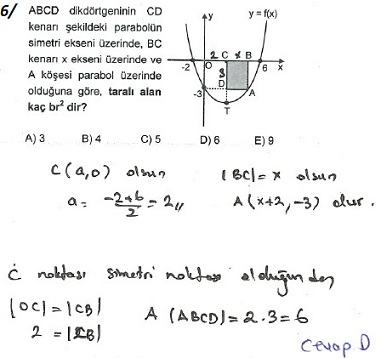 6/ ABCD dikdörtgeninin CD
kenarı şekildeki parabolün
simetri ekseni üzerinde, BC
kenarı x ekseni üzerinde ve
A köşesi parabol üzerinde
olduğuna göre, taralı alan
kaç br² dir?
y y = f(x)
2 C x B
-2 O 6 x
3
-3 D A
T
A) 3 B) 4 C) 5 D) 6 E) 9
C(a,0) olsun |BC| = x olsun
a = -2+6/2 = 2,, A(x+2, -3) olur.
C noktası simetri noktası olduğundan
|OC| = |CB| A (ABCD) = 2.3 = 6
2 = |CB|
Cevap D